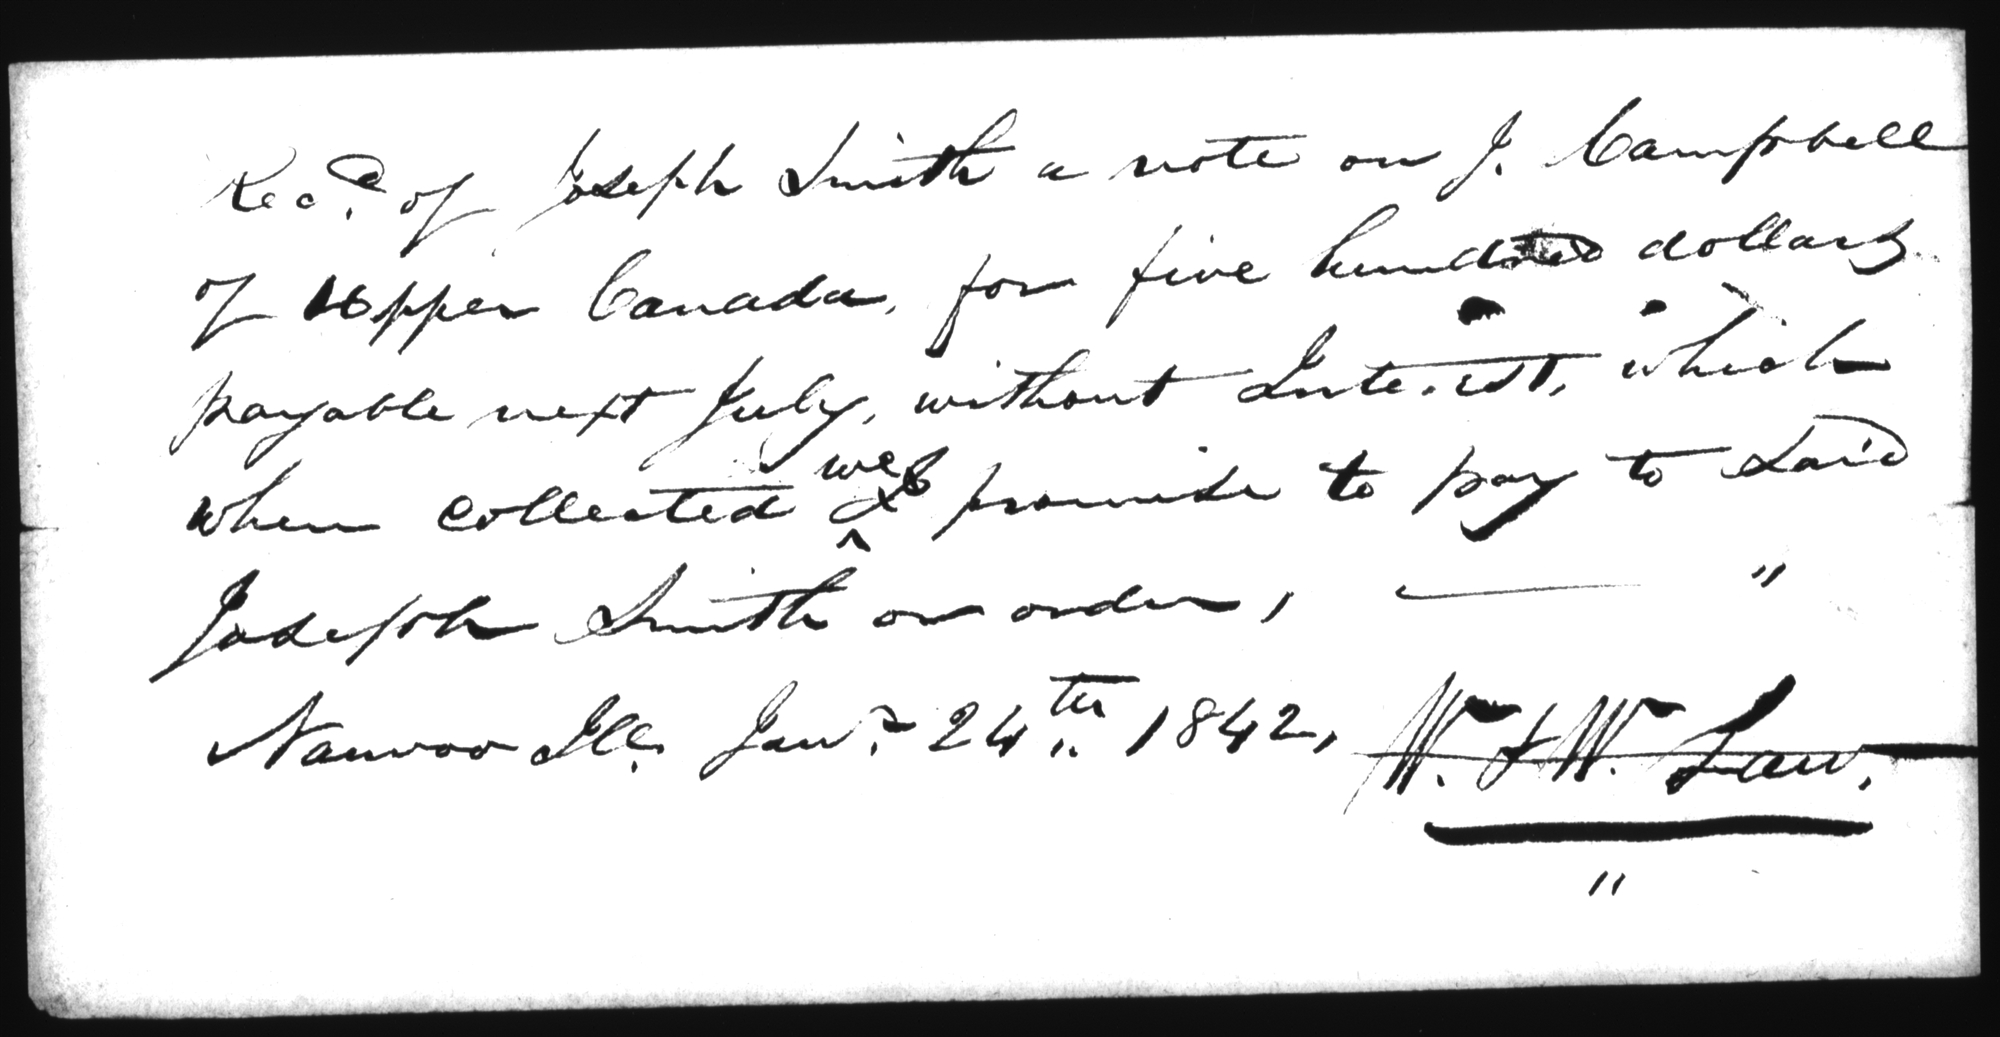 Rec.d of Joseph Smith a note on J. Campbell
of Upper Canada, for five hundred dollars
payable next July, without Interest, which
when collected we promise to pay to said
Joseph Smith or order, — "
Nauvoo Ill. Jany. 24th 1842, W. & W. Law.
"